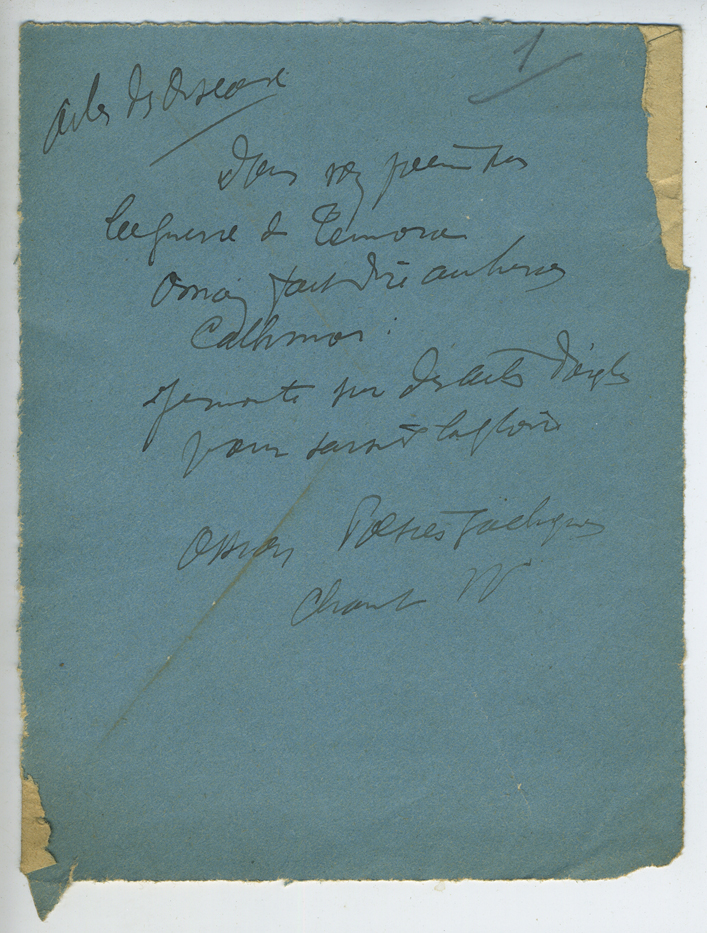 1
ailes des oiseaux
Dans ses poèmes
la guerre de Temora
Ossian fait dire au héros
Cathmor :
je monte sur des ailes d'aigle
pour saisir la gloire
Ossian Poésies Gaéliques
Chant IV